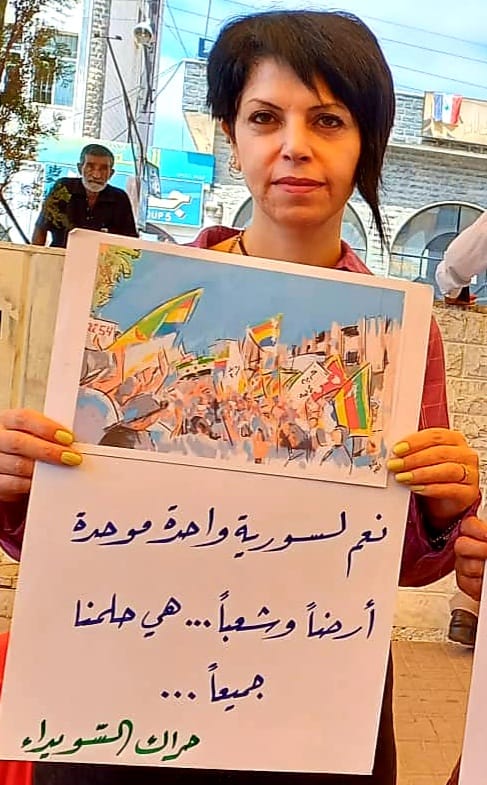 نعم لسورية واحدة موحدة
أرضاً وشعباً... هي حلمنا
جميعاً ...
حراك السّويداء